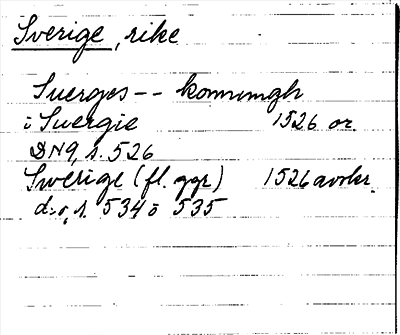 Sverige, rike
Suerges -- konnungh
i Suergie 1526 or.
DN9, s. 526
Swerige (fl. ggr) 1526 avskr.
d:o, s. 534 o 535